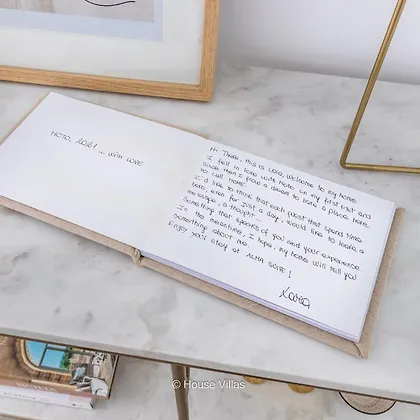 NOTO, 2021 ... with LOVE
Hi There, this is Lara, welcome to my home.
I fell in love with Noto, on my first visit and
since then I had a desire to have a place here
to call HOME.
I'd like to think that each guest that spend time
here, even for just a day, would like to leave a
message, a thought ...
Something that speaks of you and your experience
In the meantime, I hope, my home will tell you
something about me.
Enjoy your stay at ALMA SUITE!
Lara
© House Villas